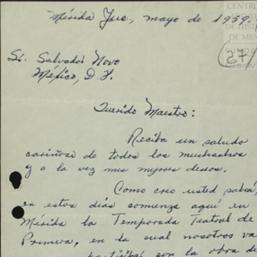 CENTRO
DE ME
Mérida Yuc., mayo de 1959.
67
Sr. Salvador Novo
México, D. F.
Querido Maestro:
Reciba un saludo
cariñoso de todos los muchachos
y a la vez mis mejores deseos.
Como creo usted sabrá,
en estos días comienza aquí en
Mérida la Temporada Teatral de
Primera, en la cual nosotros va
participar con la obra de